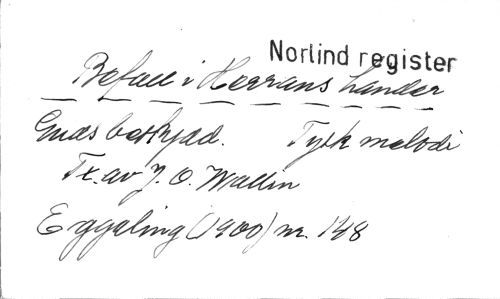 Norlind register
Befall i Herrans händer
Guds beskydd. Tysk melodi
Tx. av J. O. Wallin
Eggeling (1900) nr. 148